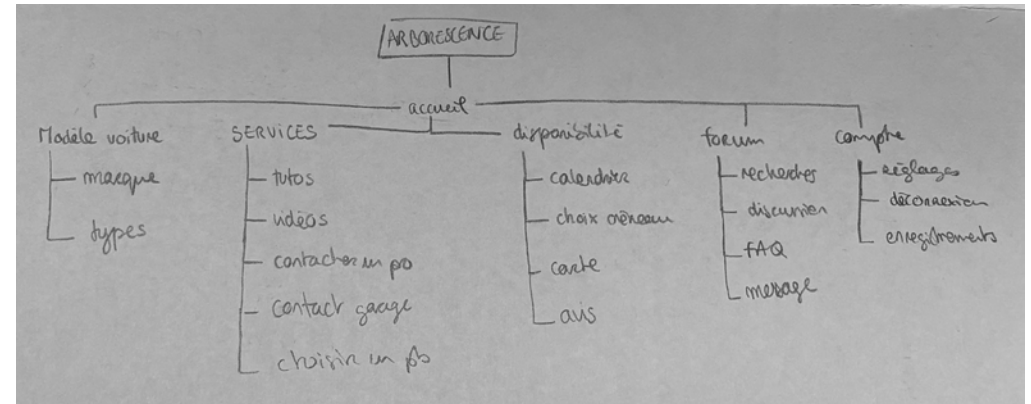 ARBORESCENCE
accueil
Modèle voiture
marque
types
SERVICES
tutos
vidéos
contacter un pro
contact garage
choisir un pb
disponibilité
calendrier
choix créneau
carte
avis
forum
recherches
discussion
FAQ
message
compte
réglages
déconnexion
enregistrements